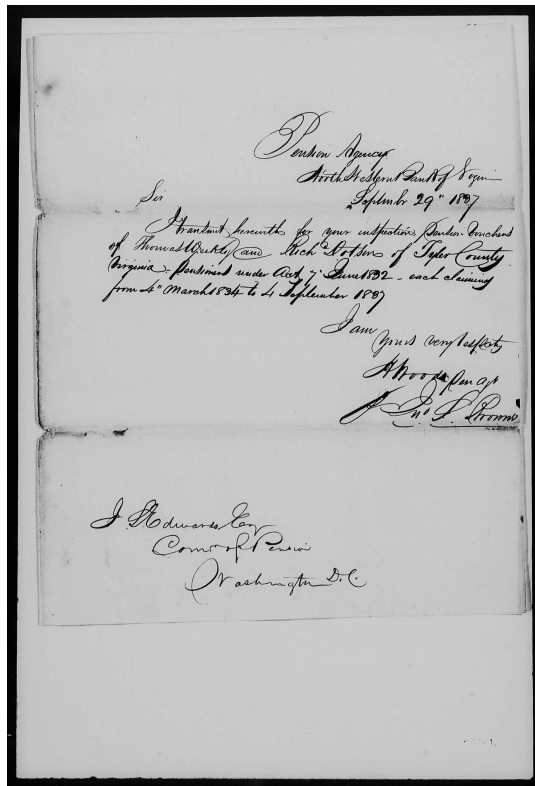 Pension Agency
North Western Bank of Virginia
September 29" 1837
Sir
I transmit herewith for your inspection Pension Vouchers
of Thomas Weekly and Rich Dotson of Tyler County
Virginia - pensioners under Act 7" June 1832 - each claiming
from 4" March 1834 to 4 September 1837
I am
yours very respecty
A Woods Pen agt
Jno
J L Edwards Esq
Comr of Pension
Washington D.C.